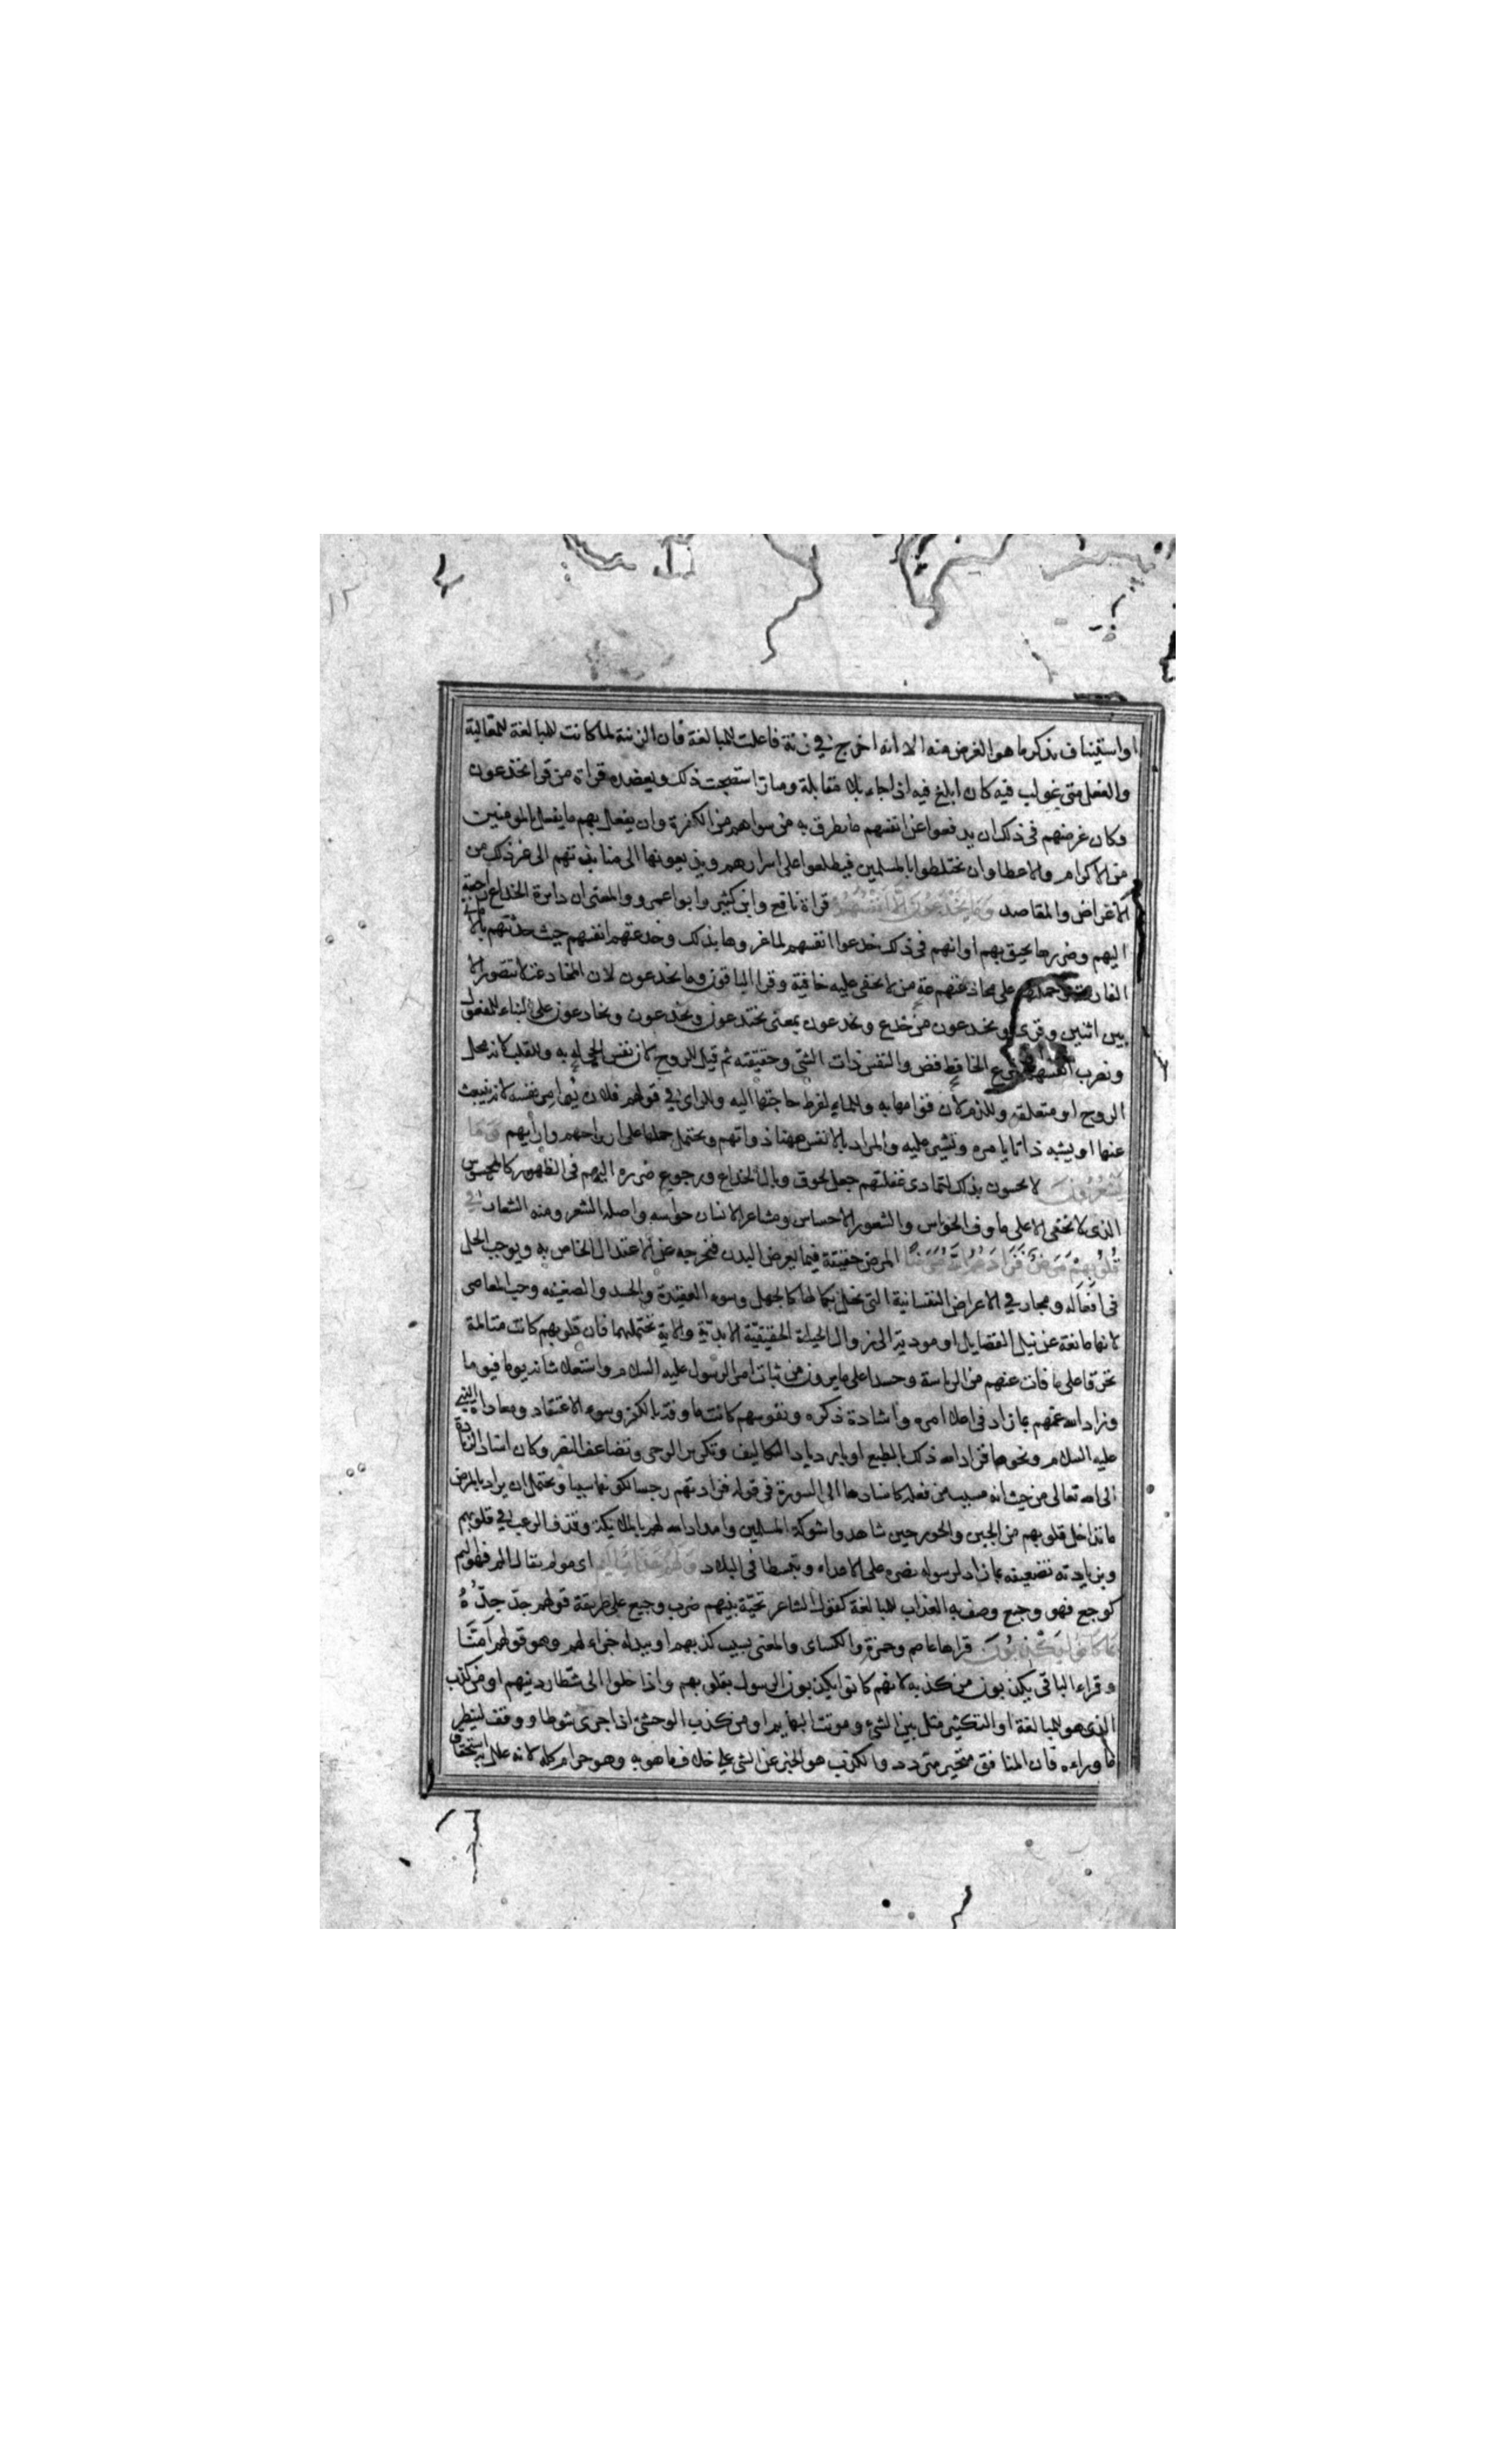 ١٢
او استيناف بذكر ما هو الغرض منه الا انه اخرج في زنة فاعلت للمبالغة فان الزنة لما كانت للمبالغة للمغالبة
والفعل متى غولب فيه كان ابلغ فيه اذا جاء بلا مقابلة استصحبت ذلك ويعضده قراة من قرا يخدعون
وكان غرضهم في ذلك ان يدفعوا عن انفسهم ما يطرق به من سواهم من الكفرة وان يفعل بهم ما يفعل بالمومنين
من الاكرام والاعطا وان يختلطوا بالمسلمين فيطلعوا على اسرارهم ويذيعونها الى منابذتهم الى غير ذلك من
الاغراض والمقاصد وَمَا يَخْدَعُونَ اِلَّا اَنْفُسَهُمْ قراة نافع وابن كثير وابو اعمرو والمعنى ان دايرة الخداع راجعة
اليهم وضررها يحيق بهم او انهم في ذلك خدعوا انفسهم لما غروها بذلك وخدعتهم انفسهم حيث حدثتهم بالاماني
الفارغة وحملتهم على مخادعتهم من لا يخفى عليه خافية وقرا الباقون وما يخدعون لان المخادعة لا تتصور الا
بين اثنين وقرى ويخدعون من خدع ويخدعون بمعنى يختدعون ويخدعون ويخادعون على البناء للمفعول
ونصب انفسهم بنزع الخافض والنفس ذات الشي وحقيقته ثم قيل للروح لان نفس الحي به وللقلب لانه محل
الروح او متعلقه وللدم لان قوامها به وللماء لفرط حاجتها اليه وللراي في قولهم فلان يوامر نفسه لانه ينبعث
عنها او يشبه ذاتا يامره وتشير عليه والمراد بالانفس ههنا ذواتهم ويحتمل حملها على ارواحهم وارايهم وَمَا
يَشْعُرُونَ لا يحسون بذلك لتمادى غفلتهم جعل لحوق وبال الخداع ورجوع ضرره اليهم في الظهور كالمحسوس
الذى لا يخفى الا على ماوف الحواس والشعور الاحساس ومشاعر الانسان حواسه واصله الشعر ومنه الشعار في
قُلُوبِهِمْ مَرَضٌ فَزَادَهُمُ اللهُ مَرَضًا المرض حقيقة فيما يعرض البدن فيخرجه عن الاعتدال الخاص به ويوجب الخلل
في افعاله ومجاز في الاعراض النفسانية التي تخل بكمالها كالجهل وسوء العقيدة والحسد والضغينه وحب المعاصى
لانها مانعة عن نيل الفضايل او مودية الى زوال الحياة الحقيقية الابدية والاية تحتملهما فان قلوبهم كانت متالمة
تحرقا على ما فات عنهم من الرياسة وحسدا على ما يرون من ثبات امر الرسول عليه السلام واستعلا شانه يوما فيوما
وزاد الله غمهم بما زاد في اعلا امره واشادة ذكره ونفوسهم كانت ماوفة بالكفر وسوء الاعتقاد ومعاداة النبي
عليه السلام ونحوها فزاد الله ذلك بالطبع او بازدياد التكاليف وتكرير الوحى وتضاعف النصر وكان اسناد الزيادة
الى الله تعالى من حيث انه مسبب من فعله كاسنادها الى السورة في قوله فزادتهم رجسا لكونها سببا ويحتمل ان يراد بالمرض
ما تداخل قلوبهم من الجبن والخور حين شاهدوا شوكة المسلمين وامداد الله لهم بالملايكة وقذف الرعب في قلوبهم
وبزيادته تضعيفه بما زاد لرسوله نصره على الاعداء وتبسطا في البلاد وَلَهُمْ عَذَابٌ اَلِيمٌ اى مولم يقال الم فهو اليم
كوجع فهو وجيع وصف به العذاب للمبالغة كقول الشاعر تحية بينهم ضرب وجيع على طريقة قولهم جد جدّهُ
بِمَا كَانُوا يَكْذِبُونَ قراها عاصم وحمزة والكساى والمعنى بسبب كذبهم او ببدله جزاء لهم وهو قولهم آمَنَّا
وقراء الباقى يكذبون من كذبه لانهم كانوا يكذبون الرسول بقلوبهم واذا خلوا الى شطار دينهم او من كذب
الذى هو للمبالغة او التكثير مثل بين الشيء وموتت البهايم او من كذب الوحشى اذا جرى شوطا ووقف لينظر
ما وراءه فان المنافق متحير متردد والكذب هو الخبر عن الشي على خلاف ما هو به وهو حرام كله لانه علل به استحقاق